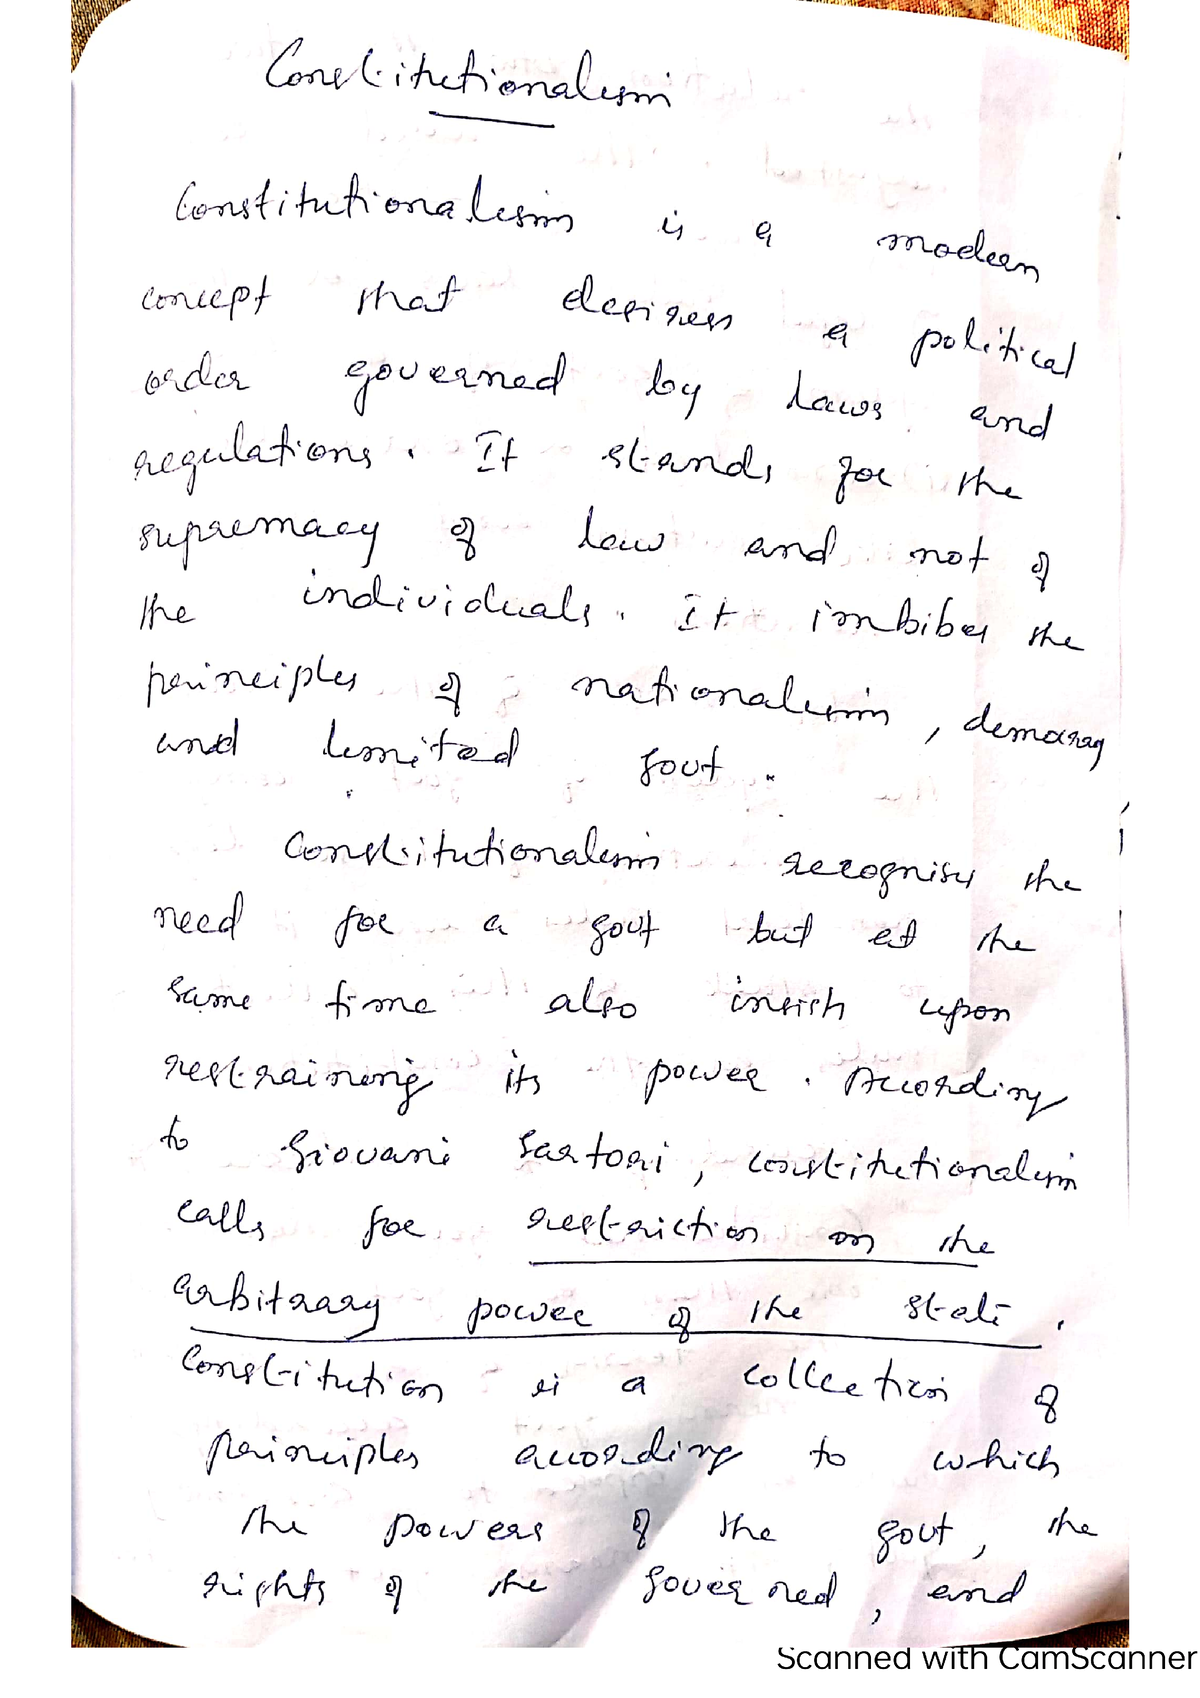 Constitutionalism
Constitutionalism is a modern
concept that desires a political
order governed by laws and
regulations. It stands for the
supremacy of law and not of
the individuals. It imbibes the
principles of nationalism, democracy
and limited govt.
Constitutionalism recognises the
need for a govt but at the
same time also insists upon
restraining its power. According
to Giovani Sartori, constitutionalism
calls for restriction on the
arbitrary power of the state.
Constitution is a collection of
principles according to which
the powers of the govt, the
rights of the governed, and
Scanned with CamScanner